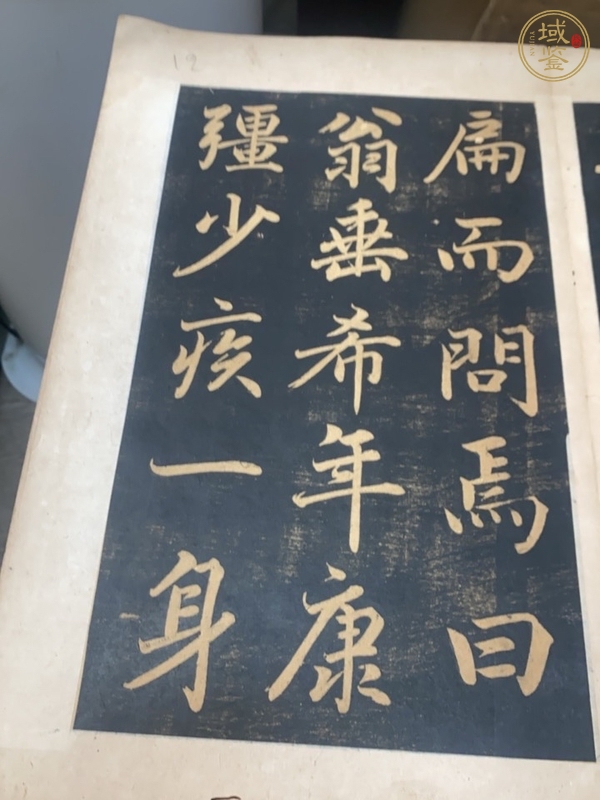 扁而問焉曰
翁垂希年康
彊少疾一身
12
域鑒